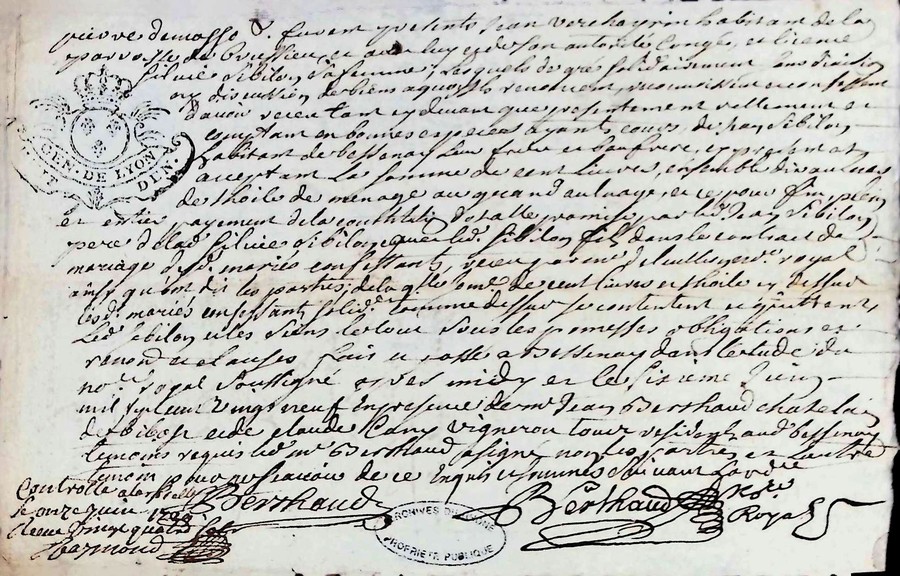 pierre demasse &. furent presents Jean Verchay habitant de la
parroisse de Brussieu, et avec luy et de son autorité Congé, et licence
Silvie Sibilon Sa femme, Lesquels de gré solidairement sans division
ny discution de biens a quoy ils renoncent,
d'avoir receu tant cy devant que presentement reellement et
comptant en bonnes especes ayants cours, de Jean Sibilon
habitant de bessenay Leur frere et beaufrere, cy present et
acceptant La somme de cent Livres, ensemble dix aulnes
de thoile de menage au grand aulnage, et ce pour fin plein
et entier payement de la constitution dotalle promise par led. Jean Sibilon
pere de lad. Silvie Sibilon, led. Sibilon fils dans le contract de
mariage desd. mariés confessants, receu par me royal
ainsy qu'ont dit les parties, de laqlle somme de cent livres et thoile cy dessus
lesd. mariés confessants solid. comme dessus se contentent et quittent
Led. Sibilon et les Siens le tout sous les promesses obligations et
renon. et clauses fait et passé a Bessenay dans l'etude du
nore. royal Soussigné apres midy et le Sixieme Juin
mil sept cent vingt neuf en presence de mr. Jean Berthaud chatelain
de et de claude Cany vigneron tous residents aud. bessenay
temoins requis led. mr. Berthaud a signé non les parties et l'autre
temoin pour ne scavoir de ce enquis et sommés Suivant Lordce
Controllé a larbresle
le onze juin 1729
Receu vingt quatre sols
Raymond
Berthaud
Berthaud nore.
Royal
GEN. DE LYON
ARCHIVES DU RHONE
PROPRIETE PUBLIQUE